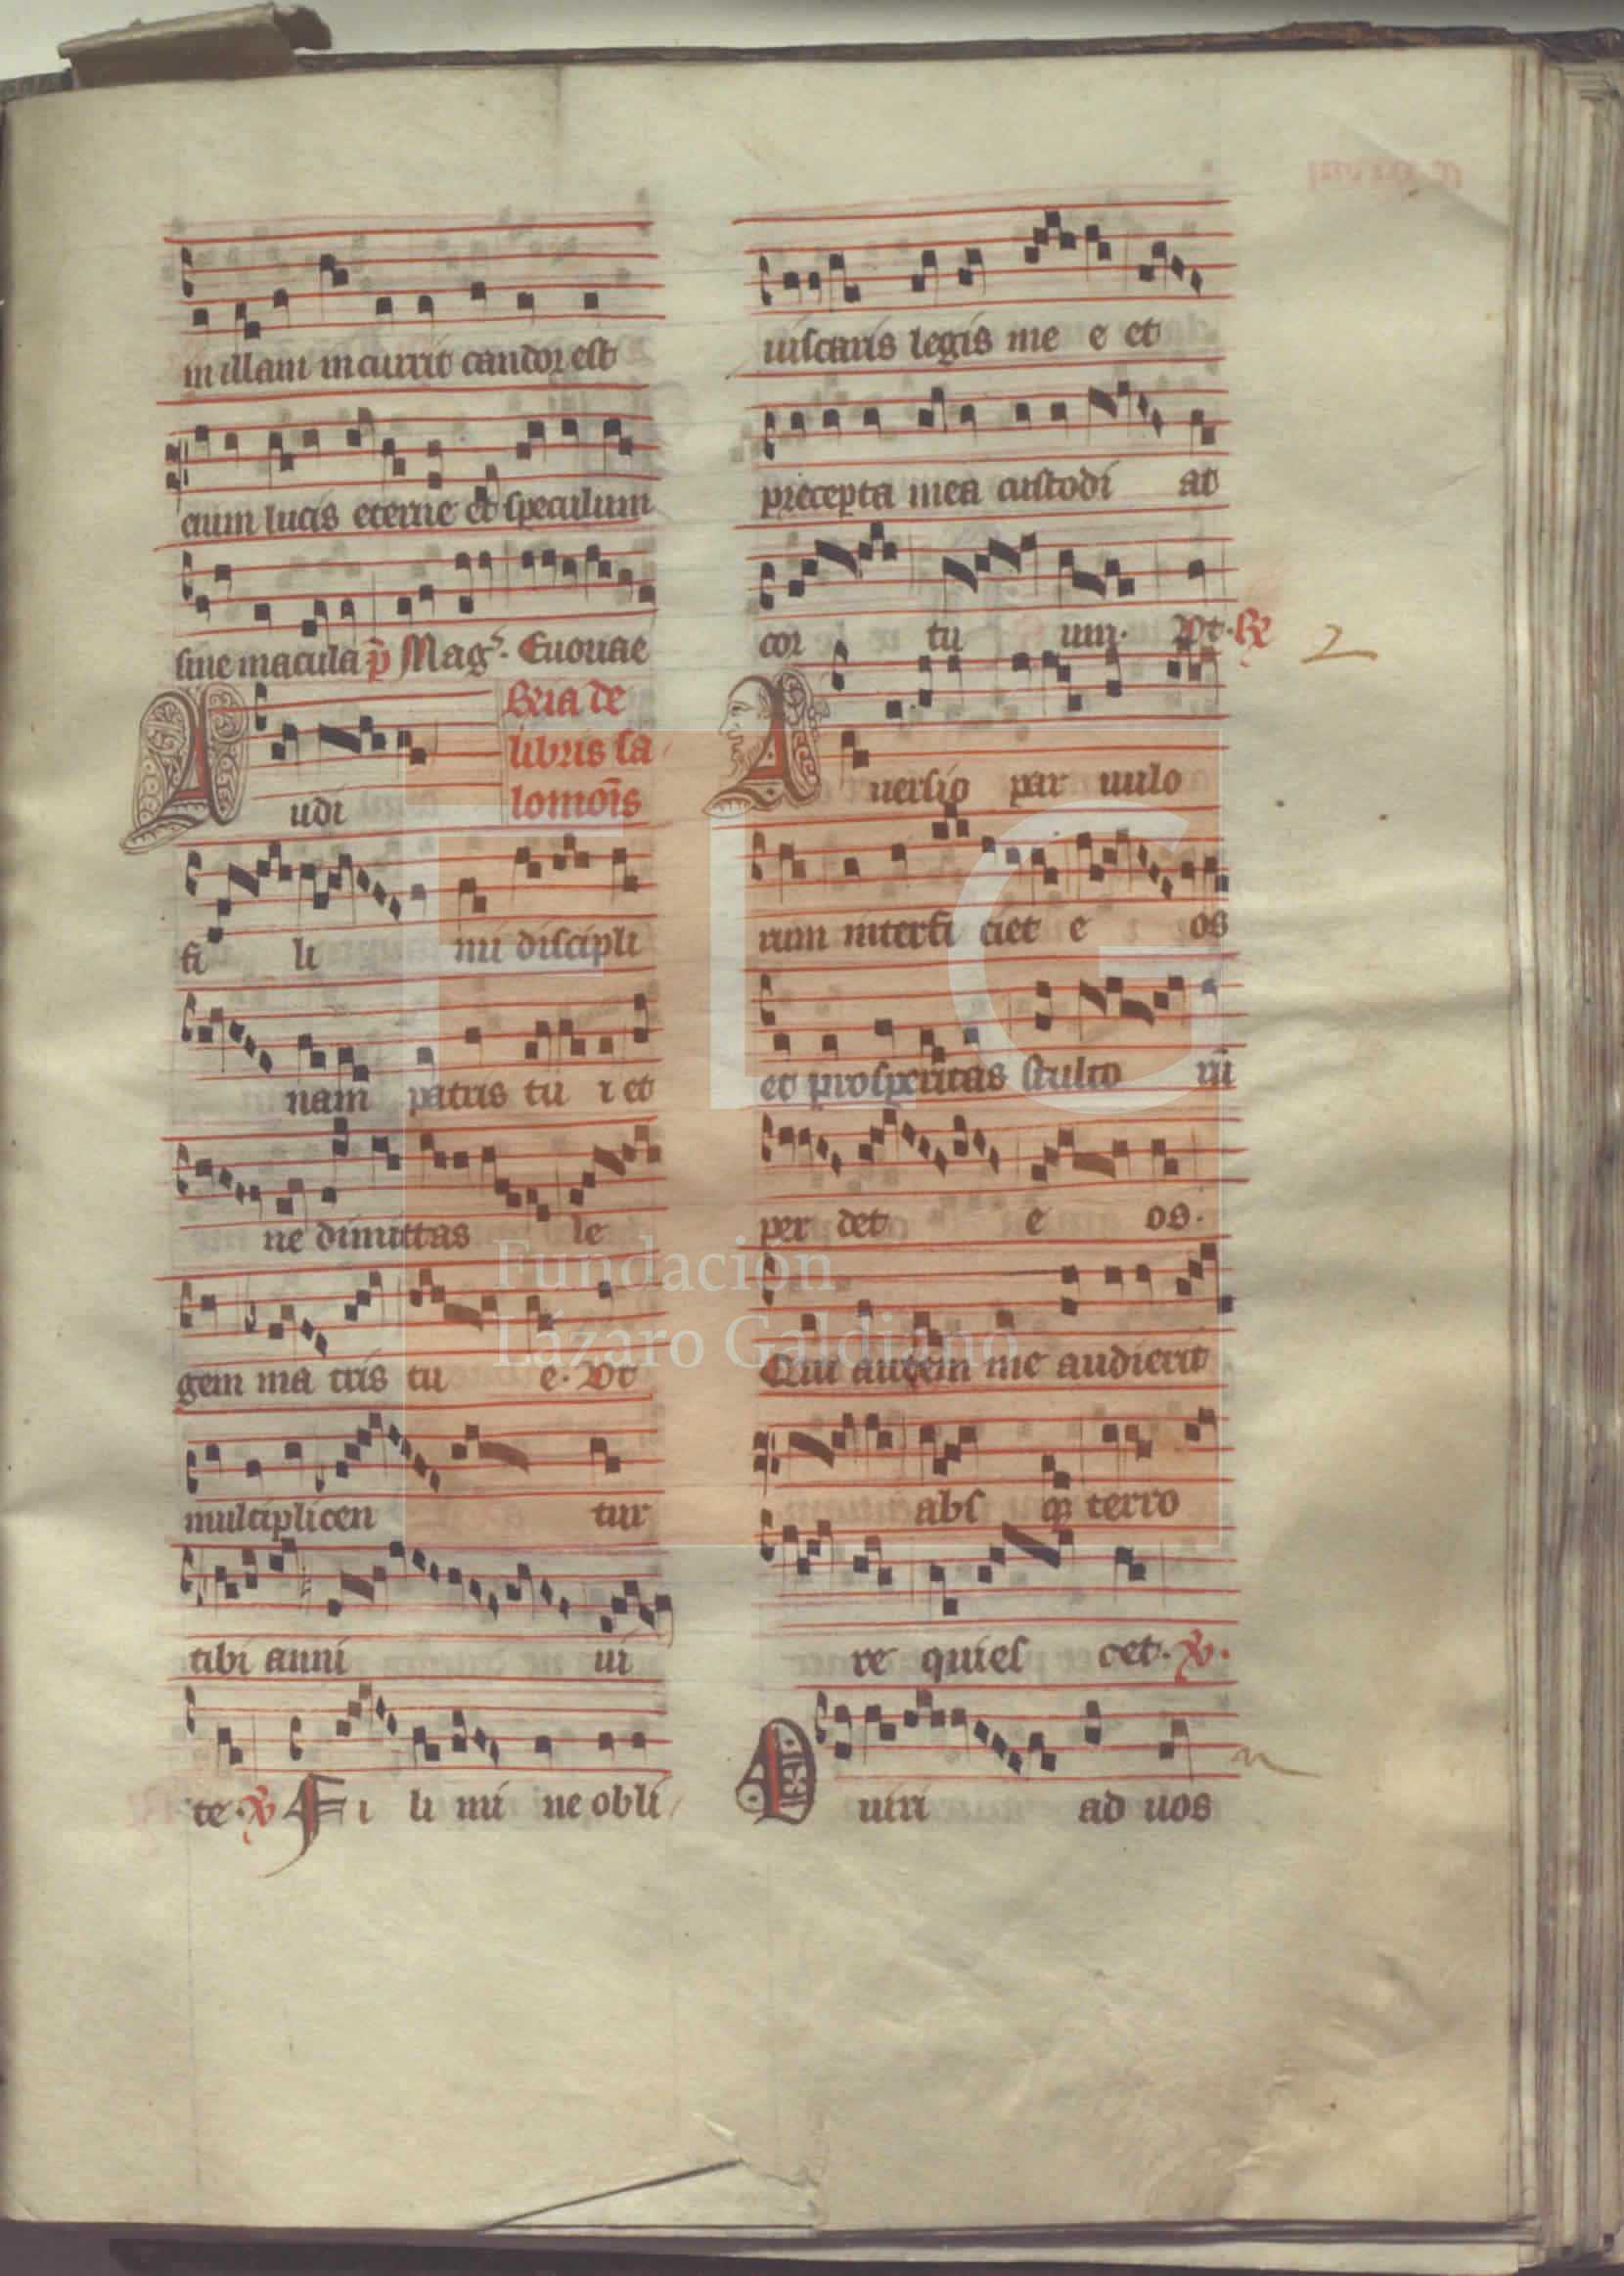 in illam incurrit candor est
cium lucis eterne et speculum
sine macula p̄ Mag. Euouae
Audi
Rꝛia de
libris sa
lomōis
fi li mi discipli
nam patris tu i et
ne dimittas le
gem ma tris tu e. Vt
multiplicen tur
tibi anni ui
te. ℣ Fi li mi ne obli
uiscaris legis me e et
precepta mea custodi at
cor tu um. Vt. ℟
2
Auersio par uulo
rum interfi ciet e os
et prosperitas stulto rū
per det e os.
Qui autem me audierit
absqꝫ terro
re quies cet. ℣.
O uiri ad uos
FLG
Fundación
Lázaro Galdiano